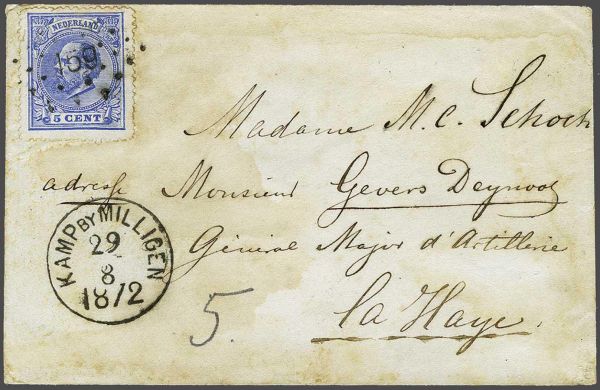 NEDERLAND
159
5 CENT
Madame M. C. Schoch
adresse Monsieur Gevers Deynoot
Général Major d'Artillerie
la Haye.
KAMP BY MILLIGEN
29
8
1872
5.